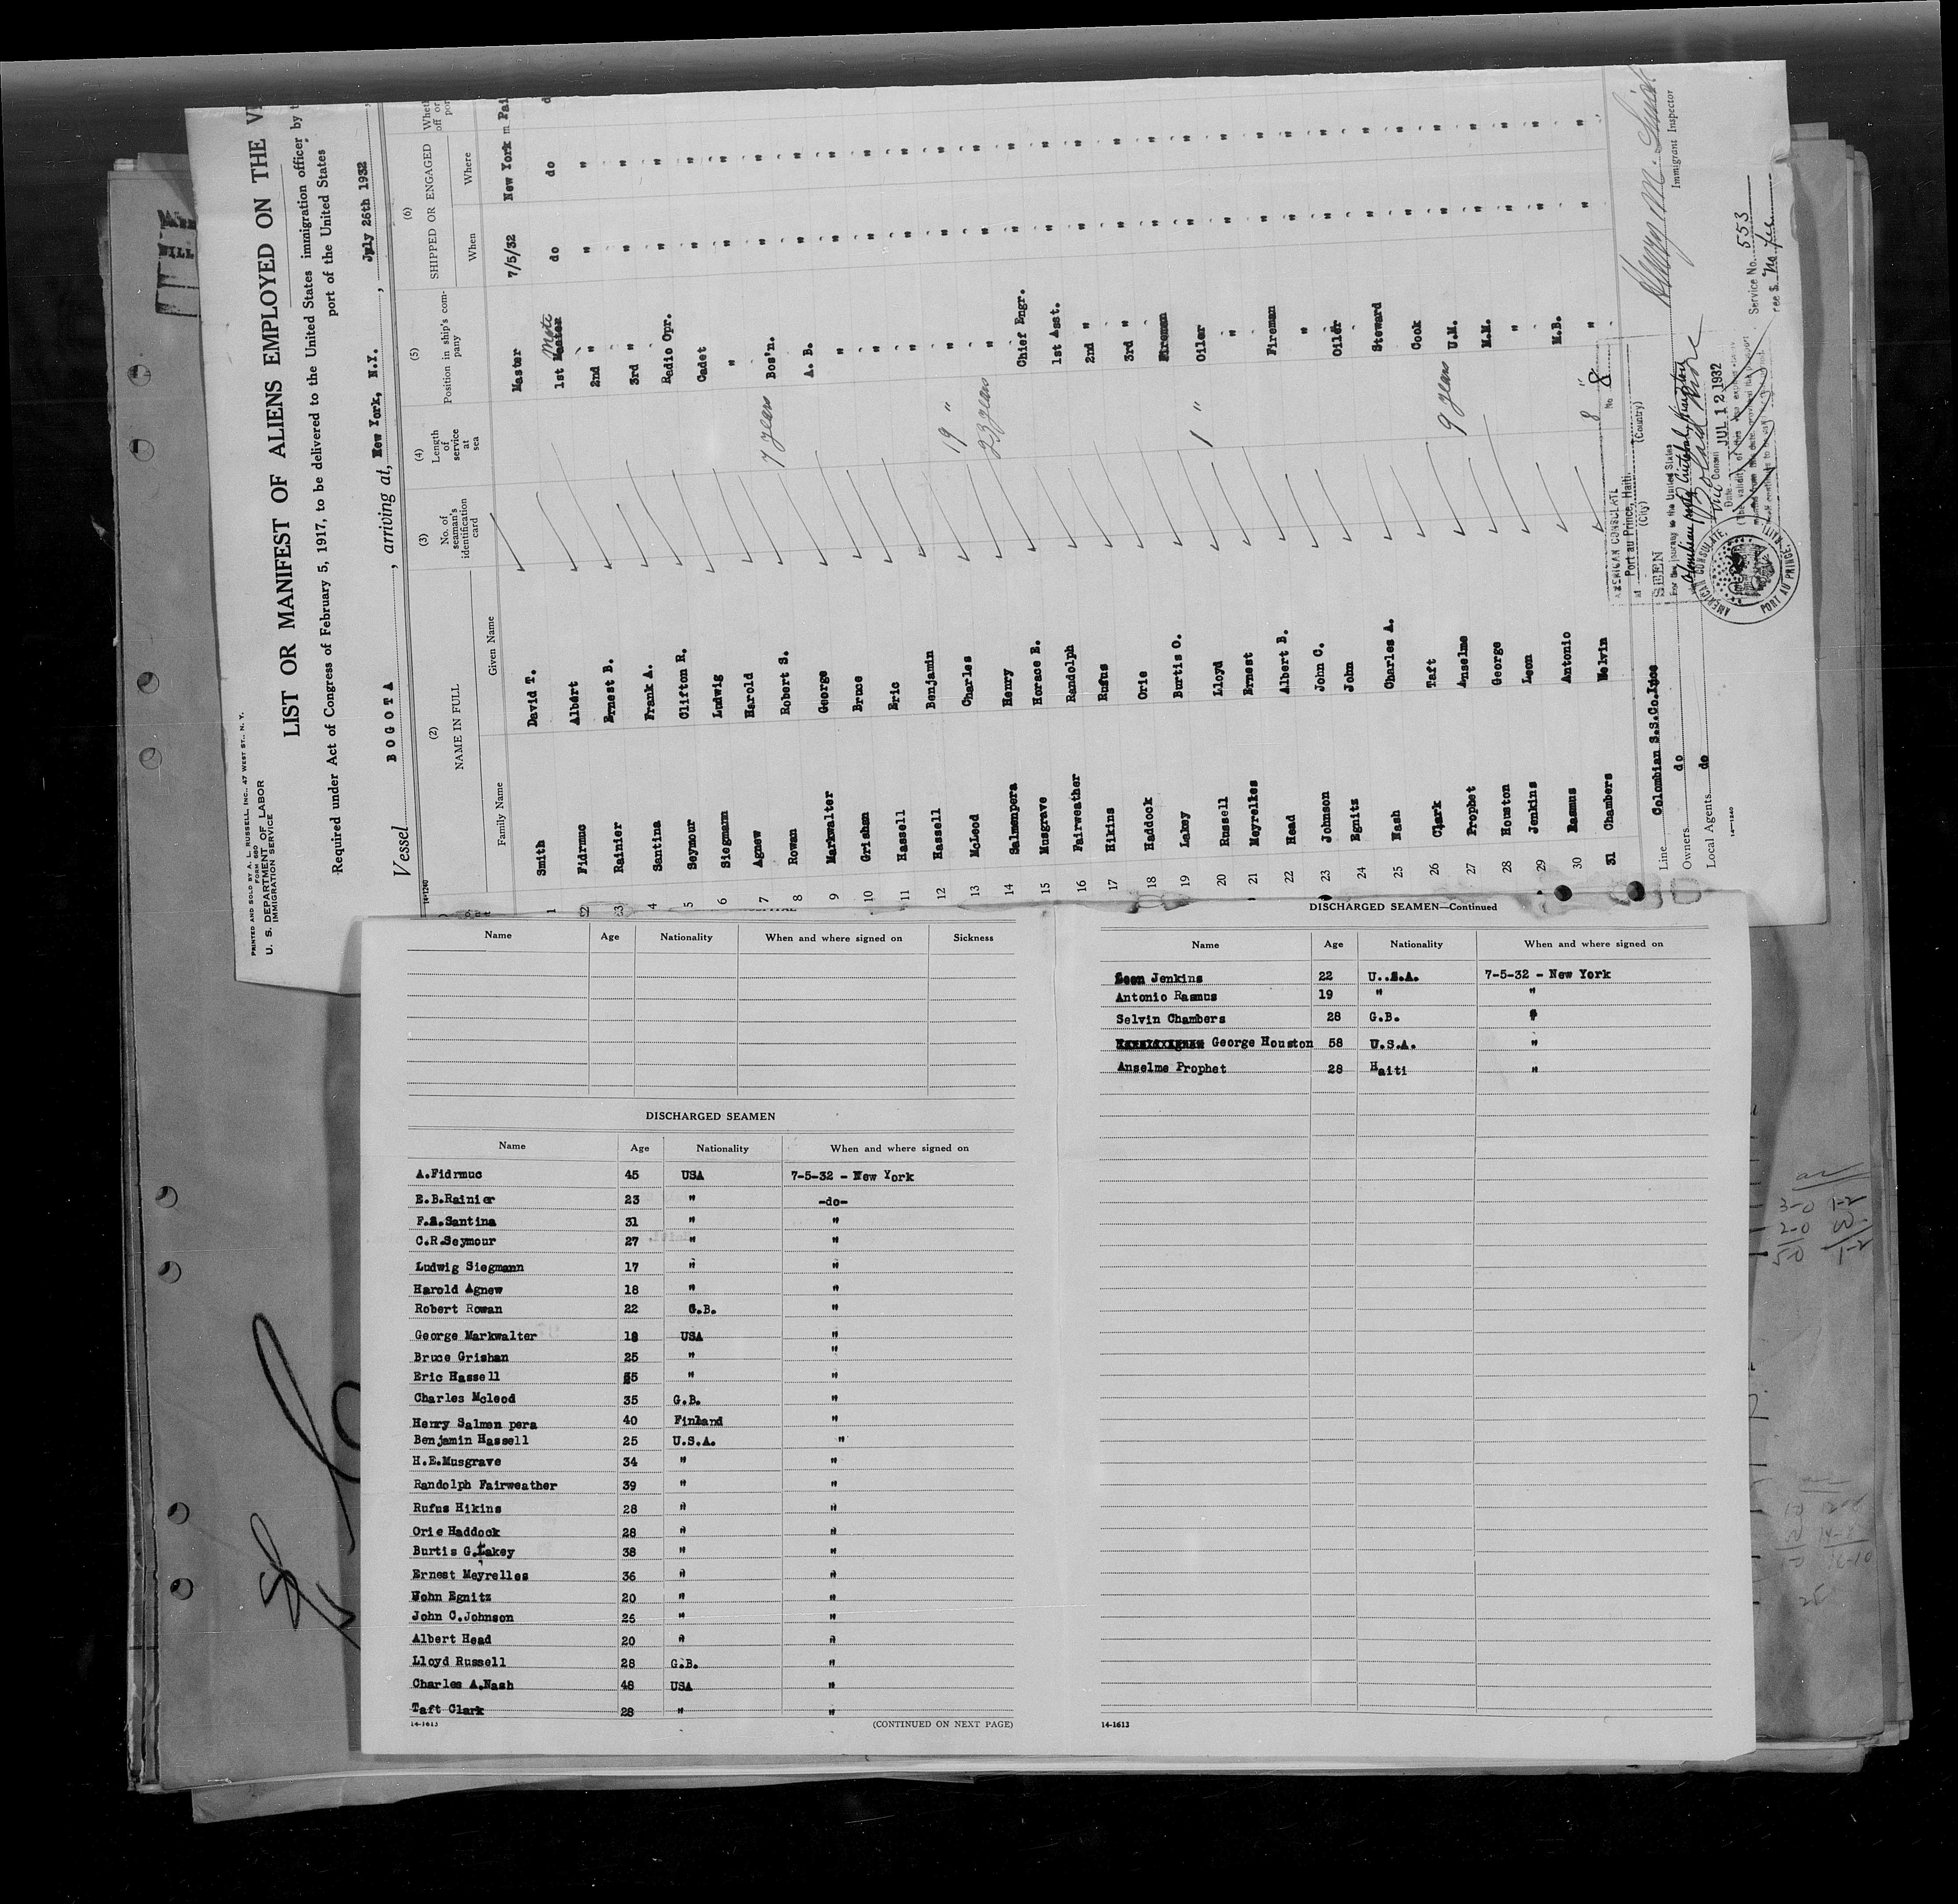 PRINTED AND SOLD BY A. L. RUSSELL, INC., 47 WEST ST., N. Y.
FORM 680
U. S. DEPARTMENT OF LABOR
IMMIGRATION SERVICE
LIST OR MANIFEST OF ALIENS EMPLOYED ON THE
Required under Act of Congress of February 5, 1917, to be delivered to the United States immigration officer by
port of the United States
Vessel BOGOTA, arriving at, New York, N.Y., July 26th 1932,
14-1240
(2) (3) (4) (5) (6)
NAME IN FULL No. of seaman's identification card Length of service at sea Position in ship's company SHIPPED OR ENGAGED
Family Name Given Name When Where
1 Smith David T. Master 7/5/32 New York m Pai
2 Fidrmuc Albert 1st Mate do do d
3 Rainier Ernest B. 2nd " " "
4 Santina Frank A. 3rd " " "
5 Seymour Clifton R. Radio Opr. " "
6 Siegmann Ludwig Cadet " "
7 Agnew Harold " " "
8 Rowan Robert S. 7 years Bos'n. " "
9 Markwalter George A. B. " "
10 Grishan Bruce " " "
11 Hassell Eric " " "
12 Hassell Benjamin " " "
13 McLeod Charles 19 " " " "
14 Salmenpera Henry 23 years " " "
15 Musgrave Horace E. Chief Engr. " "
16 Fairweather Randolph 1st Asst. " "
17 Hikins Rufus 2nd " " "
18 Haddock Orie 3rd " " "
19 Lakey Burtis O. Fireman " "
20 Russell Lloyd 1 " Oiler " "
21 Meyrelles Ernest " " "
22 Head Albert B. Fireman " "
23 Johnson John C. " " "
24 Egnitz John Oiler " "
25 Nash Charles A. Steward " "
26 Clark Taft Cook " "
27 Prophet Anselme 9 years U.M. " "
28 Houston George M.M. " "
29 Jenkins Leon " " "
30 Rasmus Antonio M.B. " "
31 Chambers Melvin 8 " " " "
Line Colombian S.S.Co.Inc
Owners do
Local Agents do
14-1240
AMERICAN CONSULATE
at Port au Prince, Haiti. No 8
(City) (Country)
SEEN
For the journey to the United States
Date JUL 12 1932
AMERICAN CONSULATE,
PORT AU PRINCE, HAITI
Service No. 553
Fee $ No fee
Immigrant Inspector
Name Age Nationality When and where signed on Sickness
DISCHARGED SEAMEN
Name Age Nationality When and where signed on
A.Fidrmuc 45 USA 7-5-32 - New York
E.B.Rainier 23 " -do-
F.A.Santina 31 " "
C.R.Seymour 27 " "
Ludwig Siegmann 17 " "
Harold Agnew 18 " "
Robert Rowan 22 G.B. "
George Markwalter 18 USA "
Bruce Grishan 25 " "
Eric Hassell 35 " "
Charles Mcleod 35 G.B. "
Henry Salmen pera 40 Finland "
Benjamin Hassell 25 U.S.A. "
H.E.Musgrave 34 " "
Randolph Fairweather 39 " "
Rufus Hikins 28 " "
Orie Haddock 28 " "
Burtis G.Lakey 38 " "
Ernest Meyrelles 36 " "
John Egnitz 20 " "
John C.Johnson 25 " "
Albert Head 20 " "
Lloyd Russell 28 G.B. "
Charles A.Nash 48 USA "
Taft Clark 28 " "
14-1613 (CONTINUED ON NEXT PAGE)
DISCHARGED SEAMEN—Continued
Name Age Nationality When and where signed on
Leon Jenkins 22 U..S.A. 7-5-32 - New York
Antonio Rasmus 19 " "
Selvin Chambers 28 G.B. "
George Houston 58 U.S.A. "
Anselme Prophet 28 Haiti "
14-1613